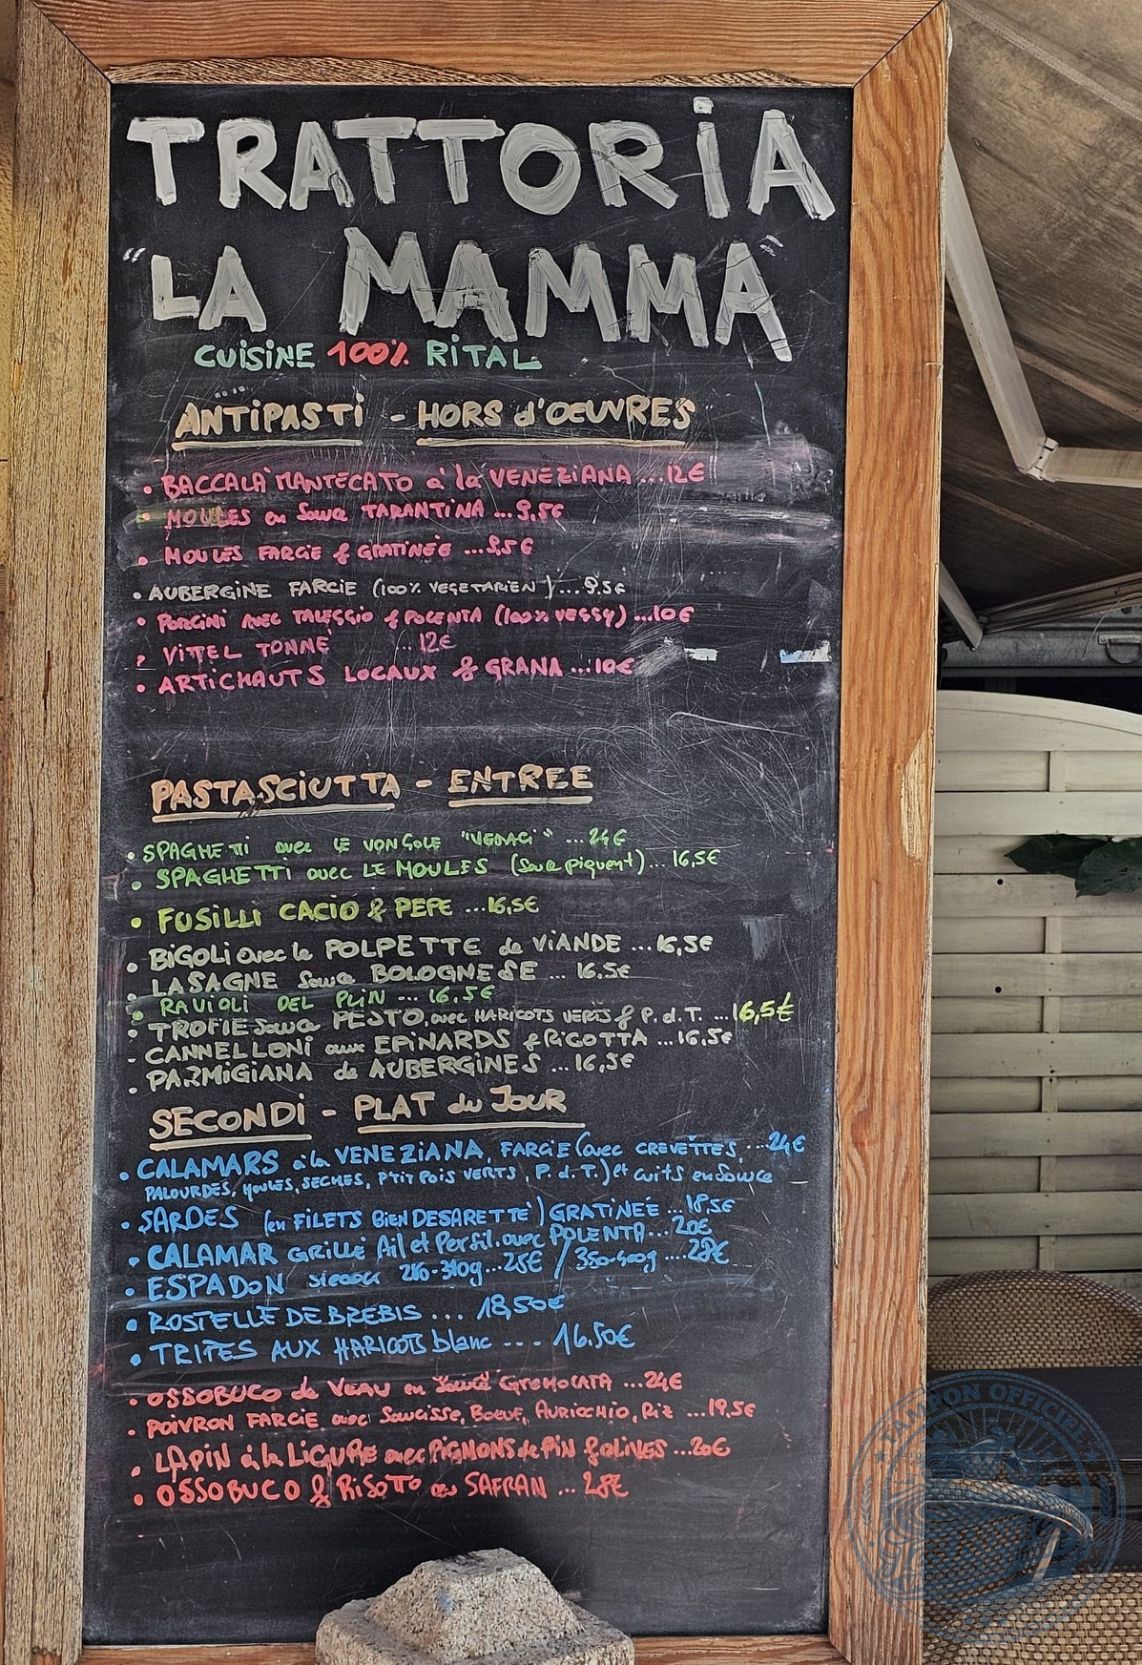 TRATTORIA
"LA MAMMA"
CUISINE 100% RITAL
ANTIPASTI - HORS d'OEUVRES
• BACCALA' MANTECATO à la VENEZIANA ...12€
• MOULES en Sauce TARANTINA ...9,5€
• MOULES FARCIE & GRATINÉE ...9,5€
• AUBERGINE FARCIE (100% VEGETARIEN) ...9.5€
• PORCINI AVEC TALEGGIO & POLENTA (100% VEGGY) ...10€
• VITEL TONNÉ ...12€
• ARTICHAUTS LOCAUX & GRANA ...10€
PASTASCIUTTA - ENTREE
• SPAGHETTI avec LE VONGOLE "VERACI" ...24€
• SPAGHETTI avec LE MOULES (Sauce piquent) ... 16,5€
• FUSILLI CACIO & PEPE ...16,5€
• BIGOLI avec le POLPETTE de VIANDE ...16,5€
• LASAGNE Sauce BOLOGNESE ... 16.5€
• RAVIOLI DEL PLIN ... 16,5€
• TROFIE sauce PESTO, avec HARICOTS VERTS & P. d. T. ...16,5€
- CANNELLONI aux EPINARDS & RICOTTA ...16,5€
• PARMIGIANA de AUBERGINES ...16,5€
SECONDI - PLAT du JOUR
• CALAMARS à la VENEZIANA, FARCIE (avec CREVETTES, ...24€
PALOURDES, MOULES, SECHES, P'TIT POIS VERTS, P. d. T.) et cuits en sauce
• SARDES (en FILETS BIEN DESARETTE') GRATINÉE ...18,5€
• CALAMAR GRILLÉ Ail et Persil, avec POLENTA ...20€
• ESPADON 280-340g ...25€ / 350-400g ...28€
• ROSTELLE DE BREBIS ... 18,50€
• TRIPES AUX HARICOTS blanc --- 16.50€
• OSSOBUCO de VEAU en Sauce GREMOLATA ...24€
• POIVRON FARCIE avec Saucisse, Boeuf, Auricchio, Riz ...19,5€
• LAPIN à la LIGURE avec PIGNONS de PIN & OLIVES ...20€
• OSSOBUCO & RISOTTO au SAFRAN ...28€
TAMPON OFFICIEL